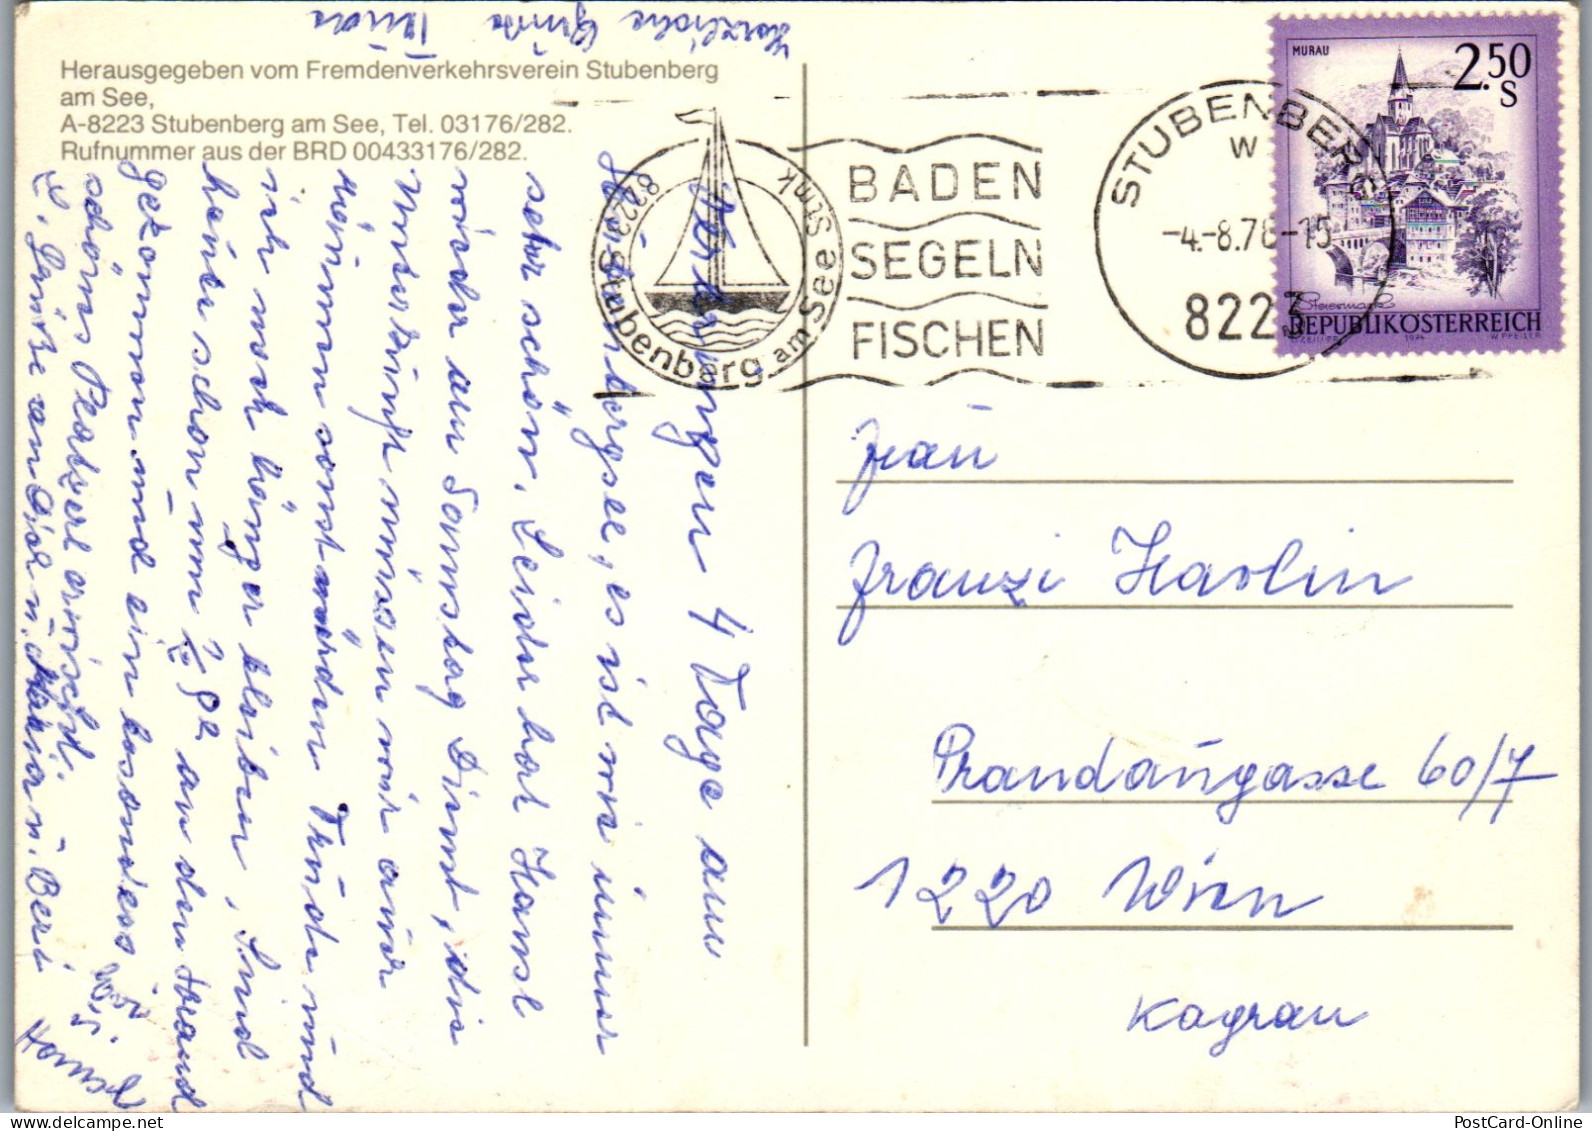 Herzliche Grüße
Trude
Herausgegeben vom Fremdenverkehrsverein Stubenberg
am See,
A-8223 Stubenberg am See, Tel. 03176/282.
Rufnummer aus der BRD 00433176/282.
8223 Stubenberg am See Stmk
BADEN
SEGELN
FISCHEN
STUBENBERG
W
-4.-8.78-15
8223
MURAU
2.50
S
Steiermark
REPUBLIK ÖSTERREICH
1974
W. PFEILER
Verbringen 4 Tage am
Stubenbergsee, es ist wie immer
sehr schön. Leider hat Hansl
wieder am Samstag Dienst, die
Unterkunft müssen wir aber
räumen sonst würden Trude und
ich noch länger bleiben. Sind
heute schon um ½ 9h an den Strand
gekommen und ein besonders
schönes Platzerl erwischt.
L. Grüße an Dich u. Marion u. Beri
Hansl
Frau
Franzi Havlin
Prandaugasse 60/7
1220 Wien
Kagran
PostCard-Online